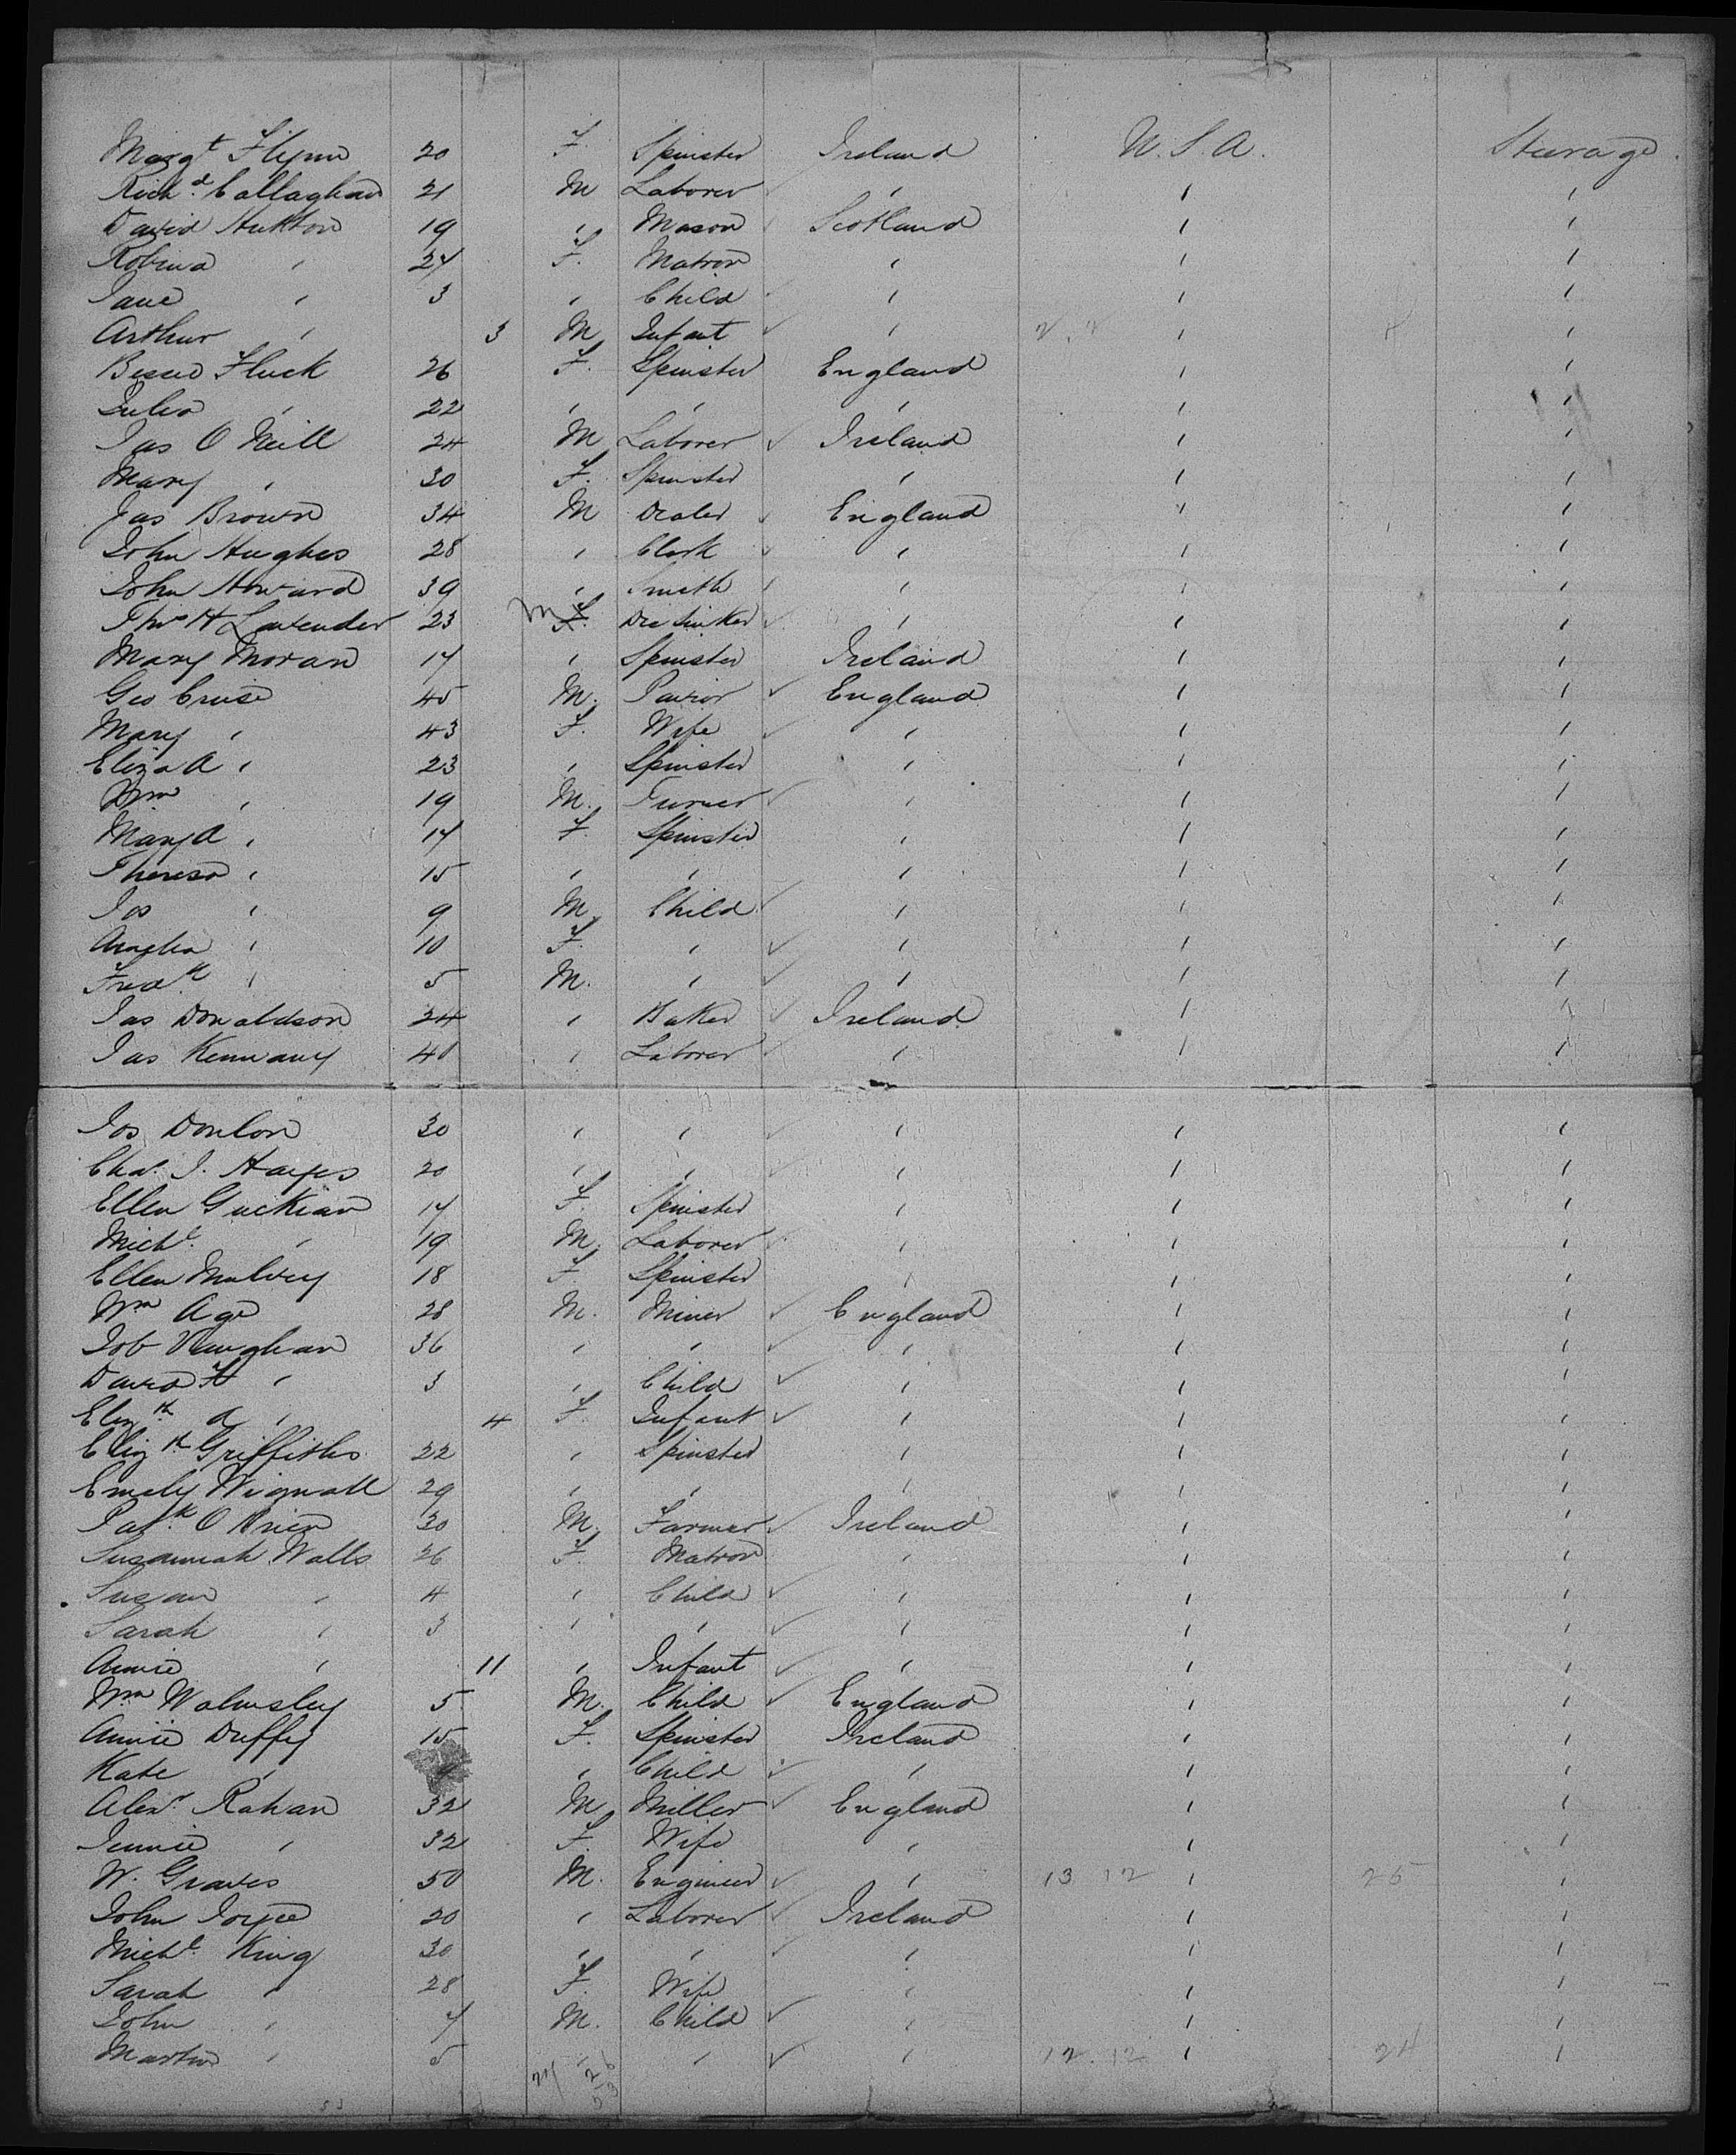 Margt Flynn 20 F. Spinster Ireland U.S.A. Steerage.
Richd. Callaghan 21 M Laborer " " "
David Hutton 19 " Mason Scotland " "
Robina " 27 F. Matron " " "
Jane " 3 " Child " " "
Arthur " 3 M Infant " " "
Bessie Fluck 26 F. Spinster England " "
Julia " 22 " " " " "
Jas O Neill 24 M Laborer Ireland " "
Mary " 30 F. Spinster " " "
Jas Brown 34 M Dealer England " "
John Hughes 28 " Clerk " " "
John Howard 39 " Smith " " "
Thos H Lavender 23 M Die Sinker " " "
Mary Moran 17 " Spinster Ireland " "
Geo Cruse 45 M. Pavior England " "
Mary " 43 F. Wife " " "
Eliza A " 23 " Spinster " " "
Wm " 19 M. Turner " " "
Mary A " 17 F. Spinster " " "
Theresa " 15 " " " " "
Jos " 9 M. Child " " "
" 10 F. " " " "
Fredk " 5 M. " " " "
Jas Donaldson 24 " Baker Ireland " "
Jas 40 " Laborer " " "
Jos Donlon 30 " " " " "
Chas. J. Hayes 20 " " " " "
Ellen Guckian 17 F. Spinster " " "
Michl. " 19 M. Laborer " " "
Ellen Mulvey 18 F. Spinster " " "
Wm Age 28 M. Miner England " "
Job Vaughan 36 " " " " "
David H " 3 " Child " " "
Elizth A " 4 F. Infant " " "
Elizth Griffiths 22 " Spinster " " "
Emely Wignall 29 " " " " "
Patk. O Brien 30 M. Farmer Ireland " "
Susannah Walls 26 F. Matron " " "
Susan " 4 " Child " " "
Sarah " 3 " " " " "
Annie " 11 " Infant " " "
Wm Walmsley 5 M. Child England " "
Annie Duffy 15 F. Spinster Ireland " "
Kate " " Child " " "
Alexr. Rahan 32 M Miller England " "
Jennie " 32 F. Wife " " "
W. Graves 50 M. Engineer " 13 12 " 25 "
John Joyce 20 " Laborer Ireland " "
Michl. King 30 " " " " "
Sarah " 28 F. Wife " " "
John " 7 M. Child " " "
Martin " 5 " " " 12.12 " 24 "